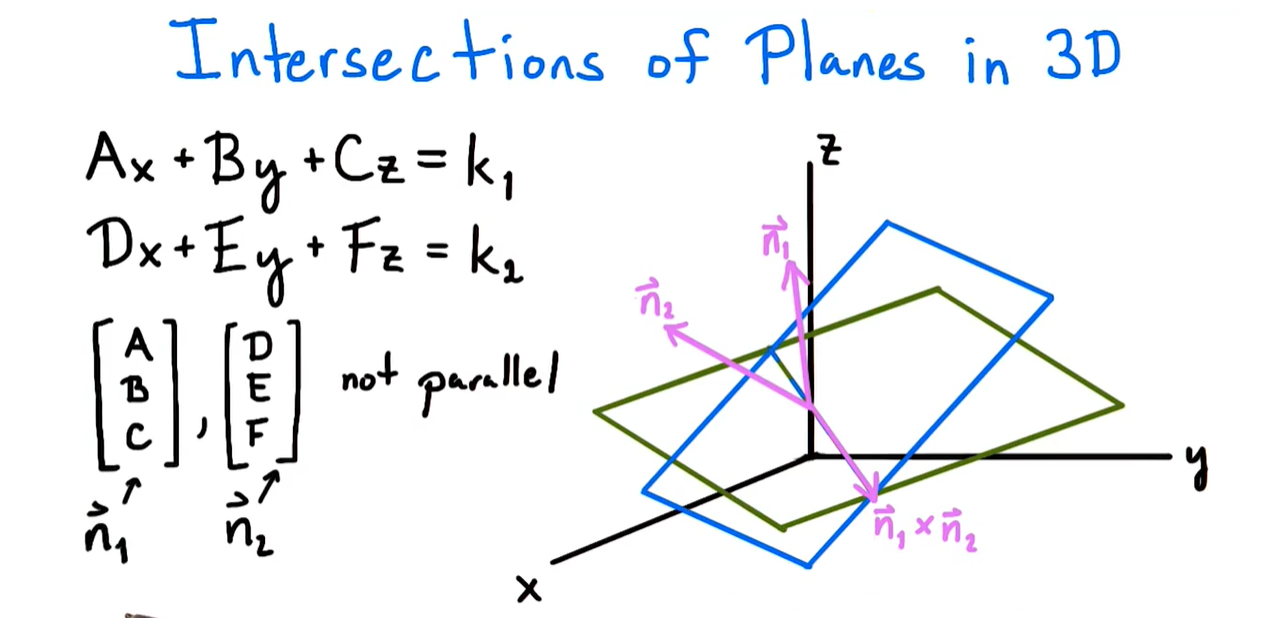 Intersections of Planes in 3D
Ax + By + Cz = k₁
Dx + Ey + Fz = k₂
[A B C] , [D E F] not parallel
n⃗₁ n⃗₂
z
n⃗₁
n⃗₂
y
n⃗₁ × n⃗₂
x